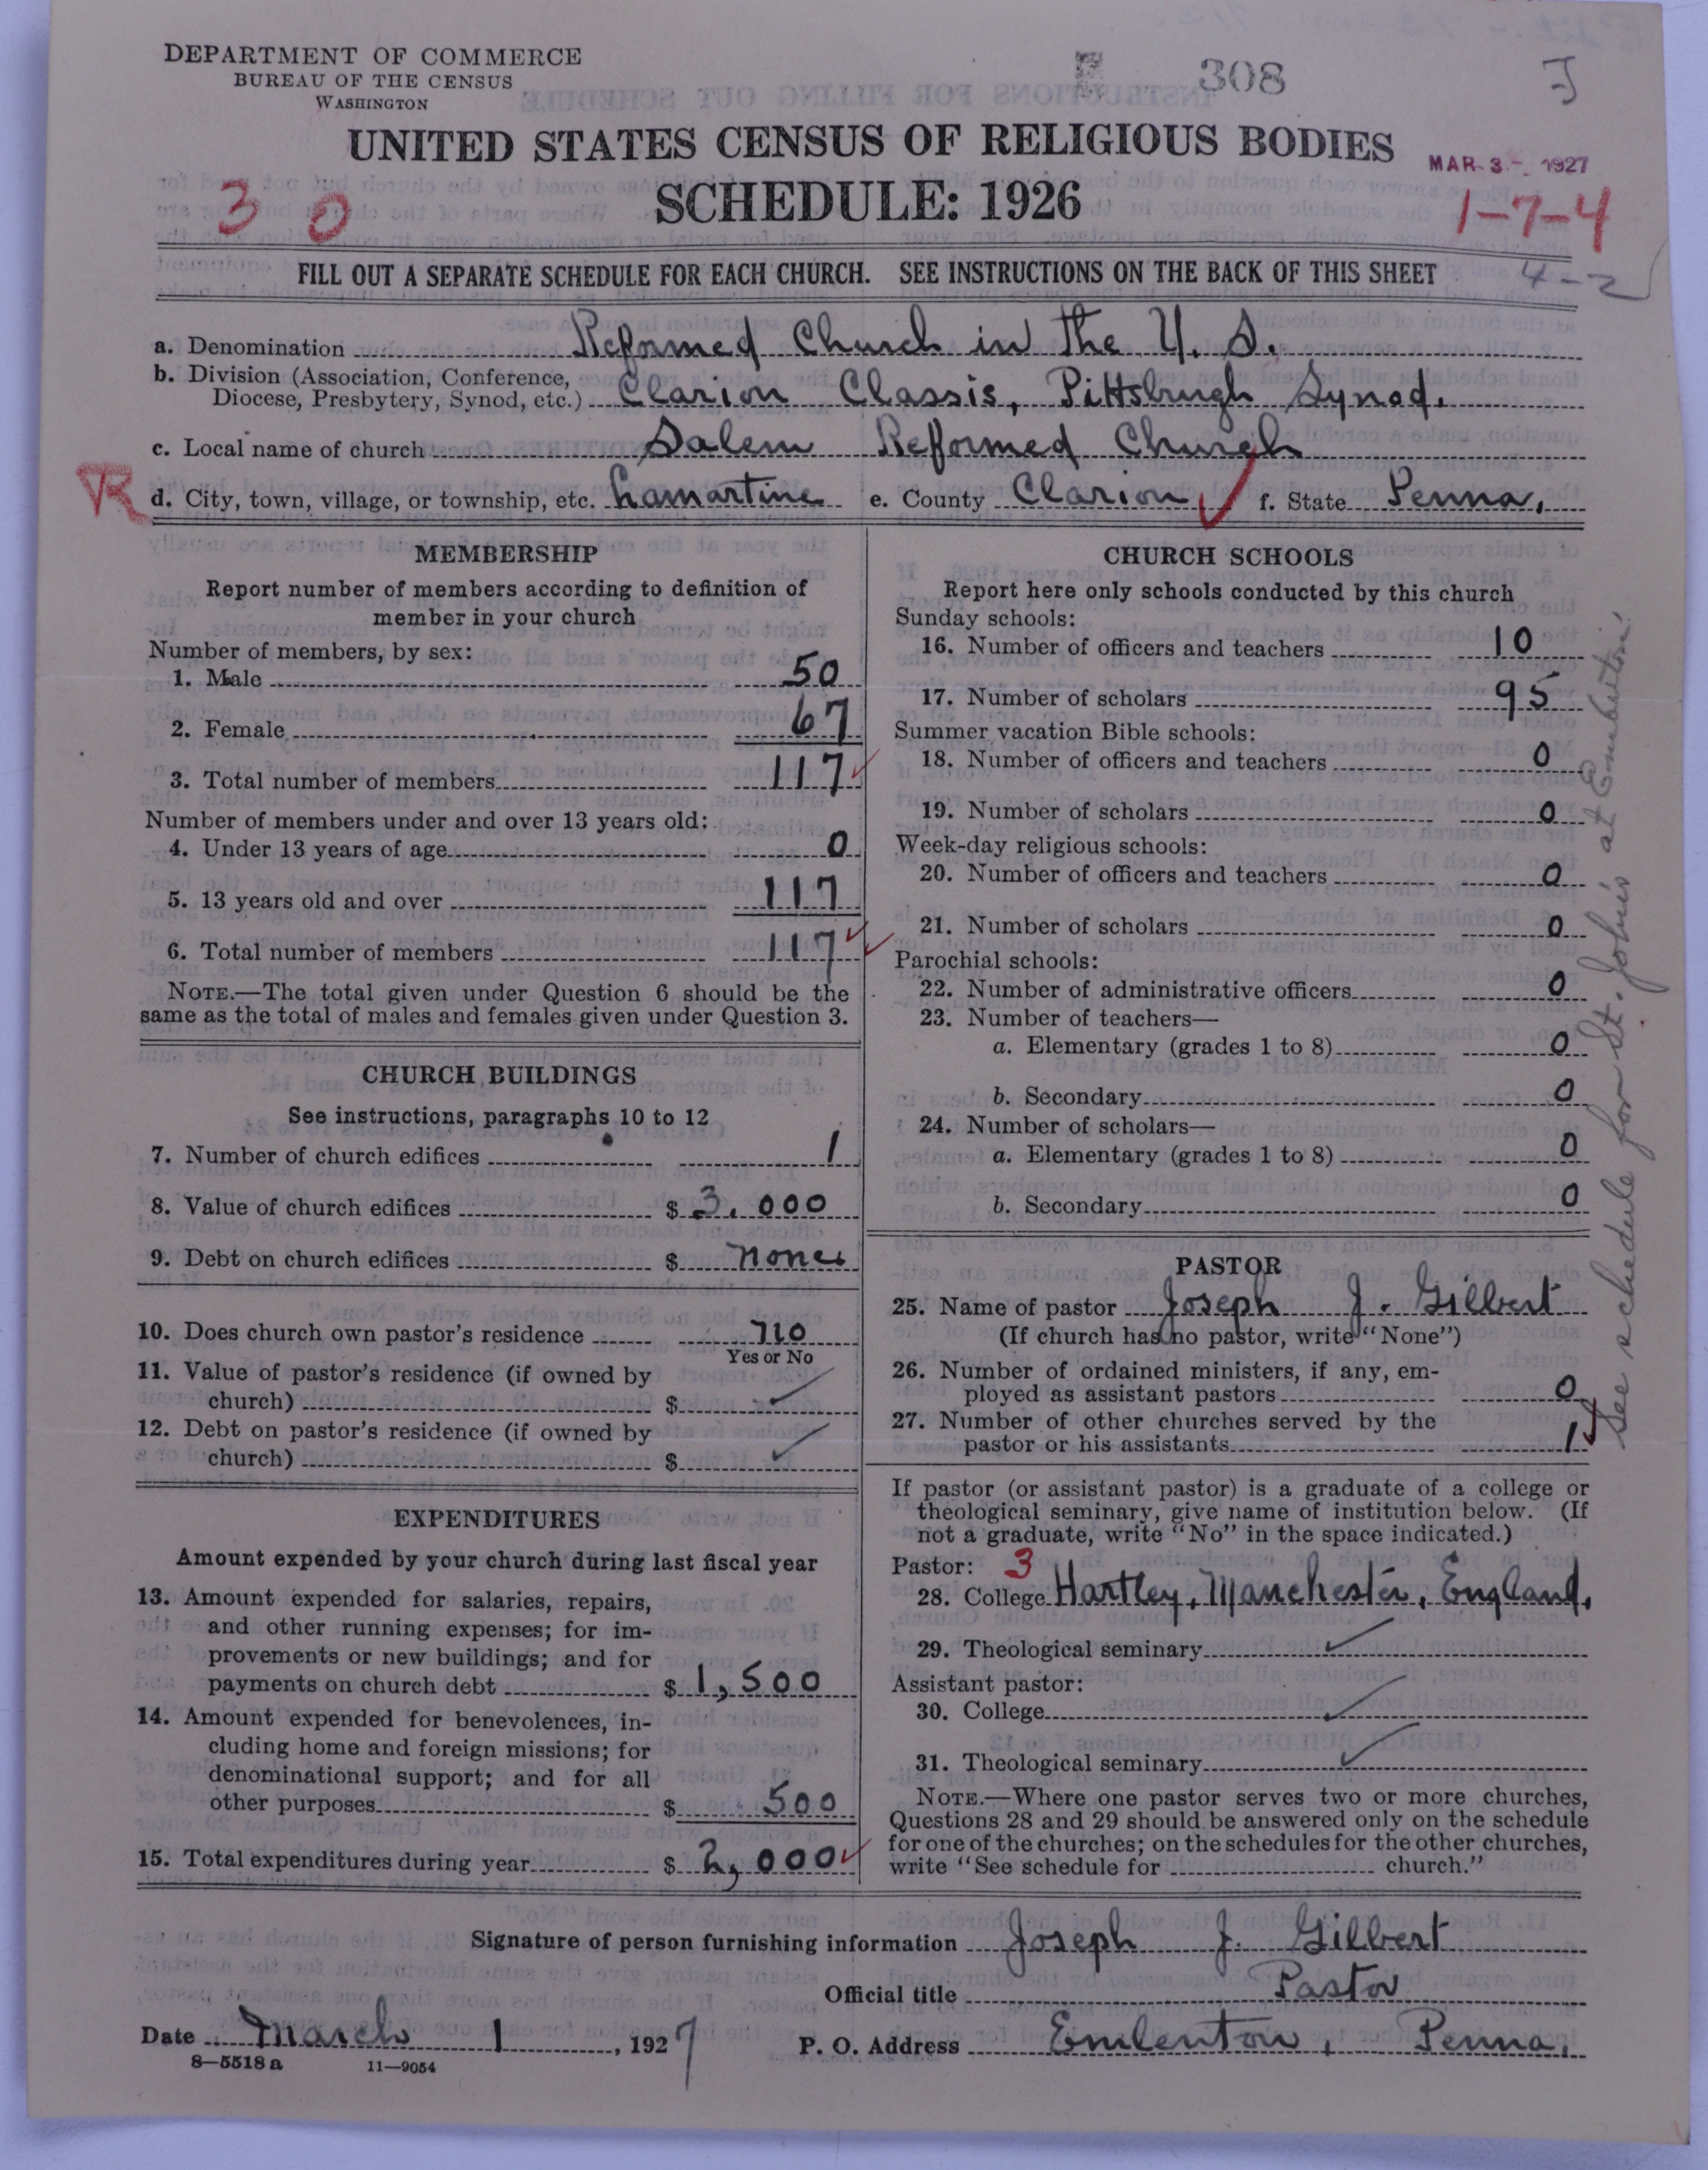 DEPARTMENT OF COMMERCE
BUREAU OF THE CENSUS
WASHINGTON
308
J
UNITED STATES CENSUS OF RELIGIOUS BODIES
MAR 3 - 1927
3 0
SCHEDULE: 1926
1-7-4
FILL OUT A SEPARATE SCHEDULE FOR EACH CHURCH. SEE INSTRUCTIONS ON THE BACK OF THIS SHEET
4-2
a. Denomination Reformed Church in the U. S.
b. Division (Association, Conference,
Diocese, Presbytery, Synod, etc.) Clarion Classis, Pittsburgh Synod.
c. Local name of church Salem Reformed Church
d. City, town, village, or township, etc. Lamartine e. County Clarion f. State Penna,
MEMBERSHIP
Report number of members according to definition of
member in your church
Number of members, by sex:
1. Male 50
2. Female 67
3. Total number of members 117
Number of members under and over 13 years old:
4. Under 13 years of age 0
5. 13 years old and over 117
6. Total number of members 117
NOTE.—The total given under Question 6 should be the
same as the total of males and females given under Question 3.
CHURCH BUILDINGS
See instructions, paragraphs 10 to 12
7. Number of church edifices 1
8. Value of church edifices $ 3,000
9. Debt on church edifices $ none
10. Does church own pastor's residence no
Yes or No
11. Value of pastor's residence (if owned by
church) $
12. Debt on pastor's residence (if owned by
church) $
EXPENDITURES
Amount expended by your church during last fiscal year
13. Amount expended for salaries, repairs,
and other running expenses; for im-
provements or new buildings; and for
payments on church debt $ 1,500
14. Amount expended for benevolences, in-
cluding home and foreign missions; for
denominational support; and for all
other purposes $ 500
15. Total expenditures during year $ 2,000
CHURCH SCHOOLS
Report here only schools conducted by this church
Sunday schools:
16. Number of officers and teachers 10
17. Number of scholars 95
Summer vacation Bible schools:
18. Number of officers and teachers 0
19. Number of scholars 0
Week-day religious schools:
20. Number of officers and teachers 0
21. Number of scholars 0
Parochial schools:
22. Number of administrative officers 0
23. Number of teachers—
a. Elementary (grades 1 to 8) 0
b. Secondary 0
24. Number of scholars—
a. Elementary (grades 1 to 8) 0
b. Secondary 0
PASTOR
25. Name of pastor Joseph J. Gilbert
(If church has no pastor, write "None")
26. Number of ordained ministers, if any, em-
ployed as assistant pastors 0
27. Number of other churches served by the
pastor or his assistants 1
See schedule for St. John's at Emlenton.
If pastor (or assistant pastor) is a graduate of a college or
theological seminary, give name of institution below. (If
not a graduate, write "No" in the space indicated.)
Pastor: 3
28. College Hartley, Manchester, England.
29. Theological seminary
Assistant pastor:
30. College
31. Theological seminary
NOTE.—Where one pastor serves two or more churches,
Questions 28 and 29 should be answered only on the schedule
for one of the churches; on the schedules for the other churches,
write "See schedule for church."
Signature of person furnishing information Joseph J. Gilbert
Official title Pastor
Date March 1, 1927 P. O. Address Emlenton, Penna,
8—5518 a 11—9054